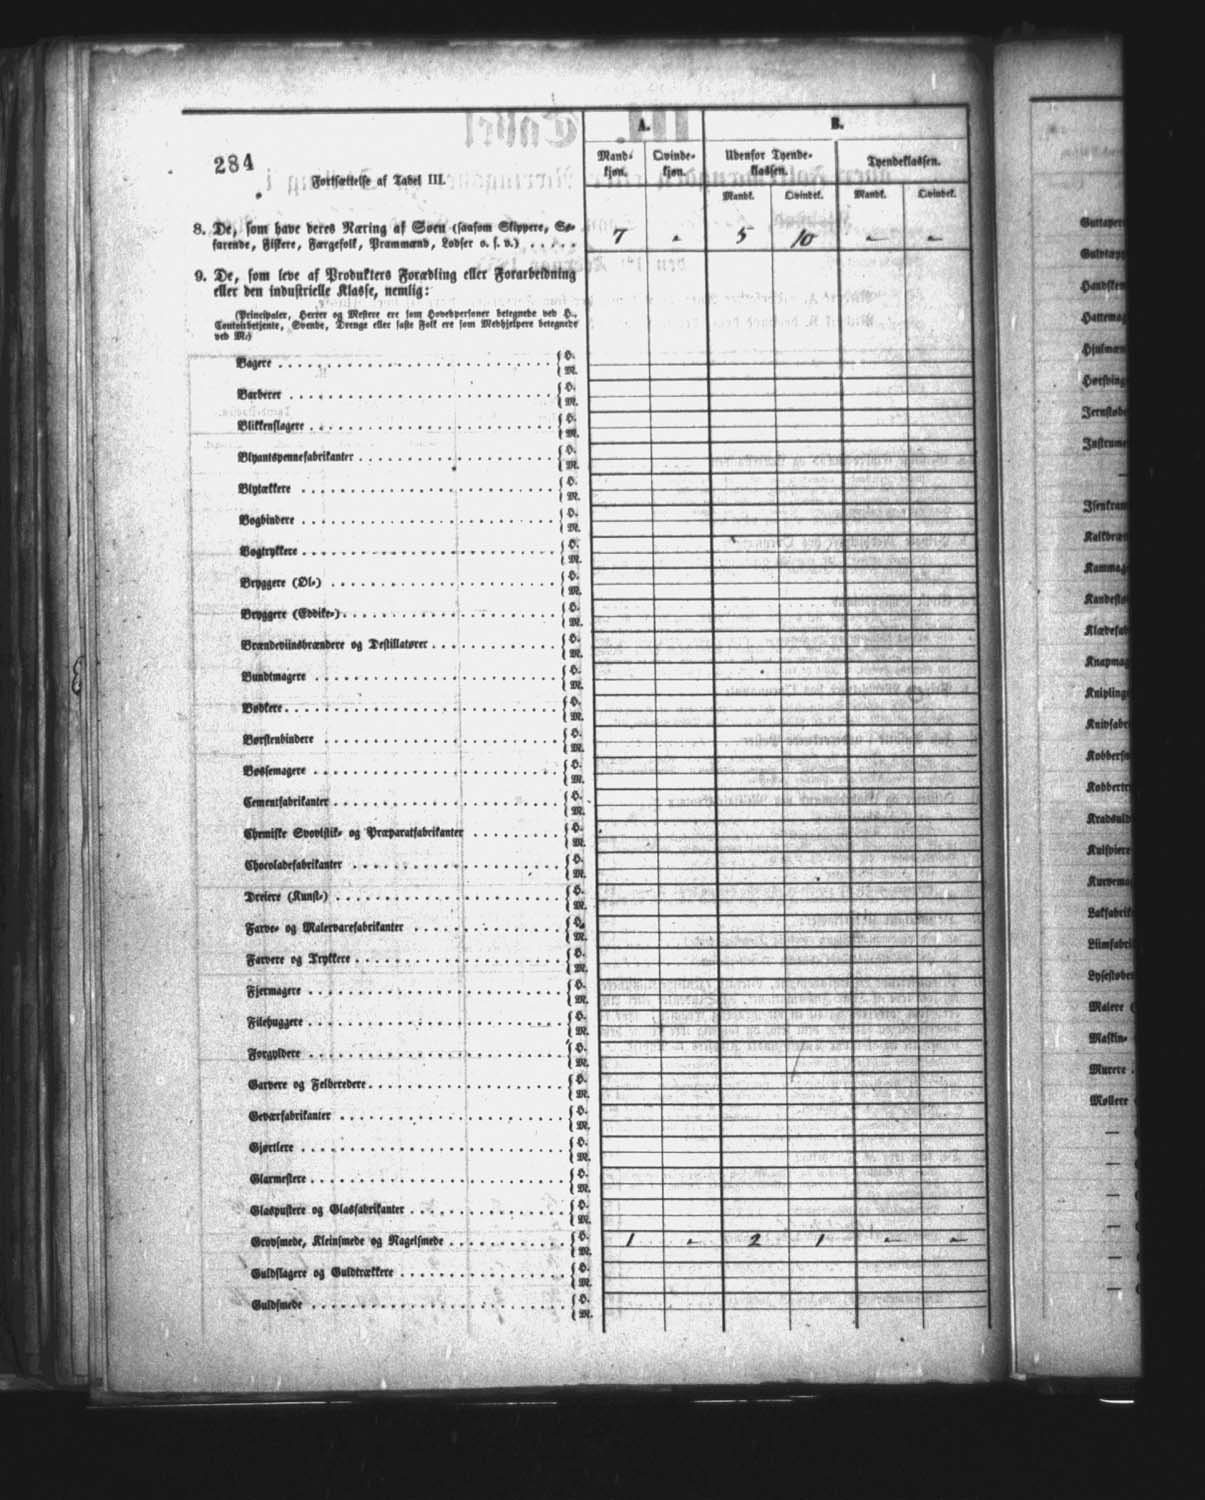 284
Fortsættelse af Tabel III.
A.
B.
Mand-
kjøn.
Qvinde-
kjøn.
Udenfor Tyende-
klassen.
Tyendeklassen.
Mandk.
Qvindek.
Mandk.
Qvindek.
8. De, som have deres Næring af Søen (saasom Skippere, Sø-
farende, Fiskere, Færgefolk, Prammænd, Lodser o. s. v.) . . . . . 7 " 5 10 " "
9. De, som leve af Produkters Forædling eller Forarbeidning
eller den industrielle Klasse, nemlig:
(Principaler, Herrer og Mestere ere som Hovedpersoner betegnede ved H.,
Contoirbetjente, Svende, Drenge eller faste Folk ere som Medhjelpere betegnede
ved M.)
Bagere { H. M.
Barberer { H. M.
Blikkenslagere { H. M.
Blyantspennefabrikanter { H. M.
Blytækkere { H. M.
Bogbindere { H. M.
Bogtrykkere { H. M.
Bryggere (Øl-) { H. M.
Bryggere (Eddike-) { H. M.
Brændeviinsbrændere og Destillatører { H. M.
Bundtmagere { H. M.
Bødkere { H. M.
Børstenbindere { H. M.
Bøssemagere { H. M.
Cementfabrikanter { H. M.
Chemiske Svovlstik- og Præparatfabrikanter { H. M.
Chocoladefabrikanter { H. M.
Dreiere (Kunst-) { H. M.
Farve- og Malervarefabrikanter { H. M.
Farvere og Trykkere { H. M.
Fjermagere { H. M.
Filehuggere { H. M.
Forgyldere { H. M.
Garvere og Felberedere { H. M.
Geværfabrikanter { H. M.
Gjørtlere { H. M.
Glarmestere { H. M.
Glaspustere og Glasfabrikanter { H. M.
Grovsmede, Kleinsmede og Nagelsmede { H. M. 1 " 2 1 " "
Guldslagere og Guldtrækkere { H. M.
Guldsmede { H. M.